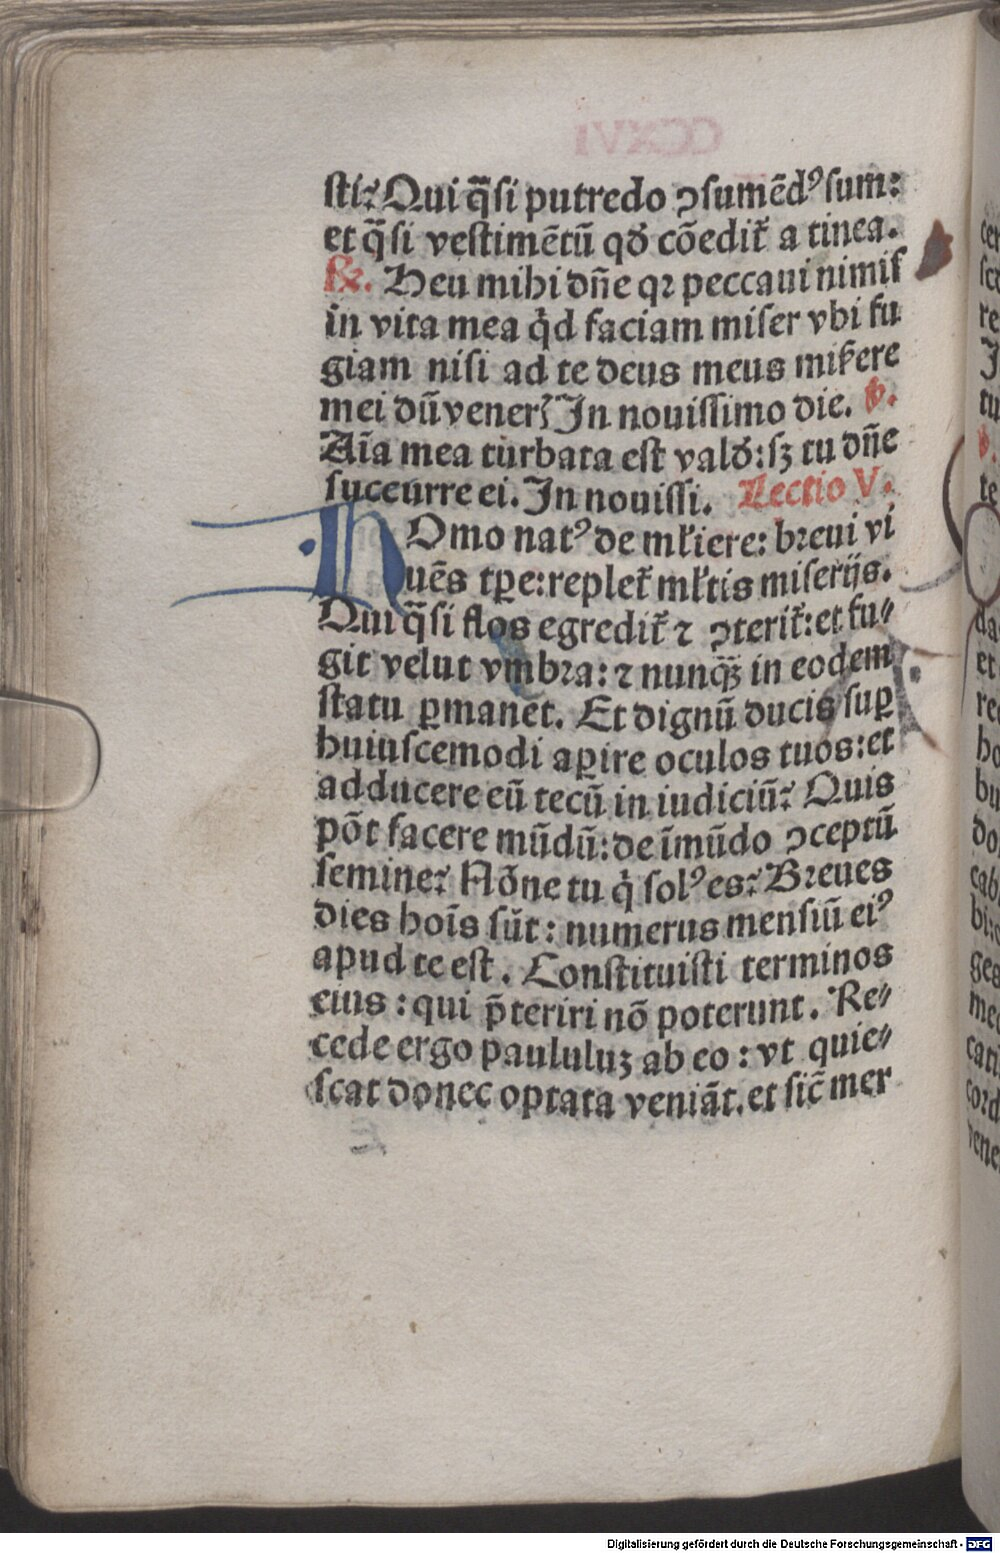 sti? Qui q̄si putredo ꝯsumēdꝰ sum:
et q̄si vestimētū qđ cōedit̄ a tinea.
℟. Heu mihi dn̄e qꝛ peccaui nimis
in vita mea qͥd faciam miser vbi fu
giam nisi ad te deus meus mis̄ere
mei dū venerꝭ In nouissimo die. ℣.
Aīa mea turbata est valđ: sꝫ tu dn̄e
succurre ei. In nouissi. Lectio V.
HOmo natꝰ de ml̄iere: breui vi
uēs tꝑe: replet̄ ml̄tis miserijs.
Qui q̄si flos egredit̄ ⁊ ꝯterit̄: et fu⸗
git velut vmbra: ⁊ nunqꝫ̄ in eodem
statu ꝑmanet. Et dignū ducis suꝑ
huiuscemodi aꝑire oculos tuos: et
adducere eū tecū in iudiciū? Quis
pōt facere mūdū: de īmūdo ꝯceptū
semine? Nōne tu qͥ solꝰ es? Breues
dies hoīs sūt: numerus mensiū eiꝰ
apud te est. Constituisti terminos
eius: qui p̄teriri nō poterunt. Re⸗
cede ergo paululuꝫ ab eo: vt quie⸗
scat donec optata veniāt. et sic̄ mer
Digitalisierung gefördert durch die Deutsche Forschungsgemeinschaft - DFG